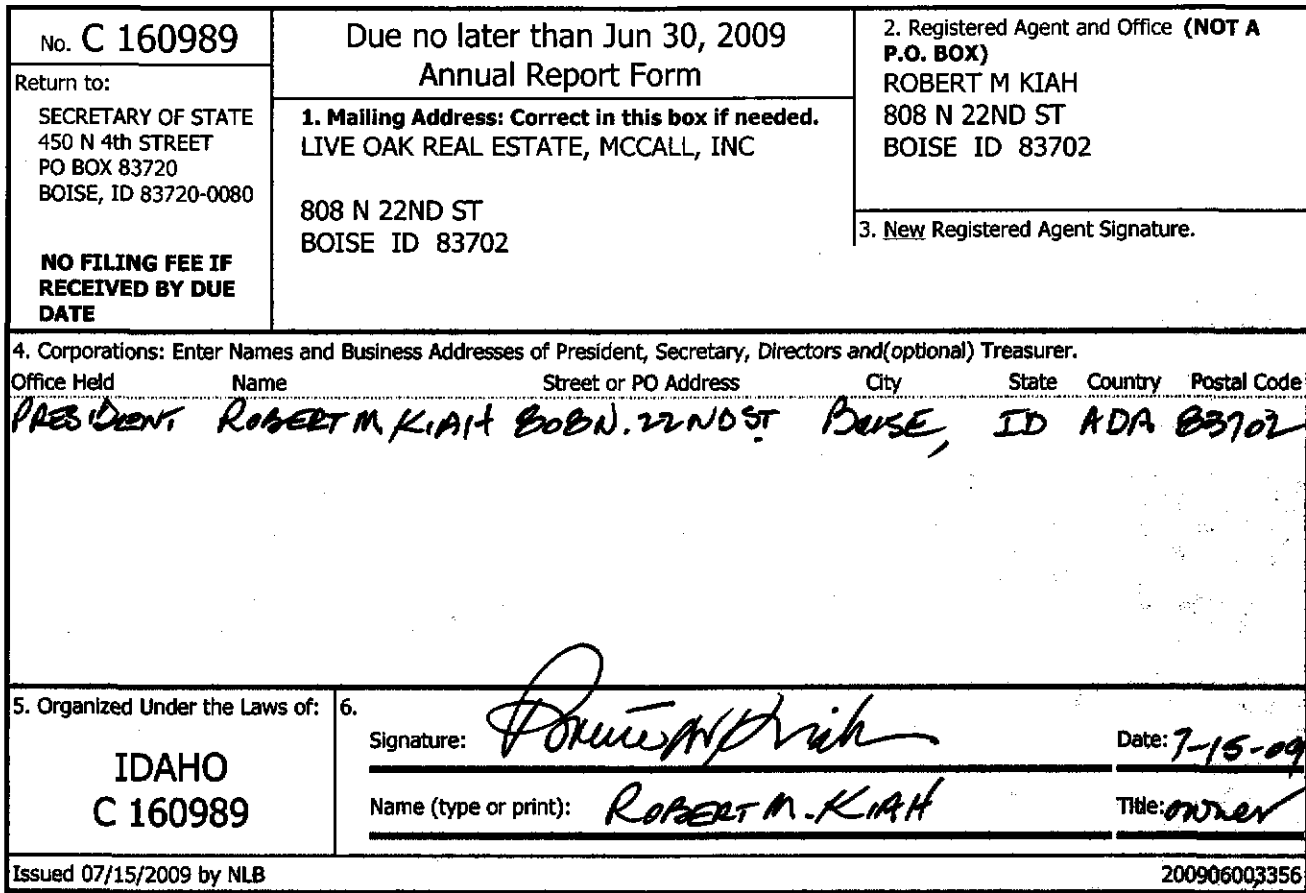 No. C 160989
Return to:
SECRETARY OF STATE
450 N 4th STREET
PO BOX 83720
BOISE, ID 83720-0080
NO FILING FEE IF
RECEIVED BY DUE
DATE
Due no later than Jun 30, 2009
Annual Report Form
1. Mailing Address: Correct in this box if needed.
LIVE OAK REAL ESTATE, MCCALL, INC
808 N 22ND ST
BOISE ID 83702
2. Registered Agent and Office (NOT A
P.O. BOX)
ROBERT M KIAH
808 N 22ND ST
BOISE ID 83702
3. New Registered Agent Signature.
4. Corporations: Enter Names and Business Addresses of President, Secretary, Directors and(optional) Treasurer.
Office Held Name Street or PO Address City State Country Postal Code
PRESIDENT ROBERT M. KIAH 808 N. 22ND ST BOISE, ID ADA 83702
5. Organized Under the Laws of:
IDAHO
C 160989
6.
Signature:
Date: 7-15-09
Name (type or print): ROBERT M. KIAH
Title: owner
Issued 07/15/2009 by NLB
200906003356